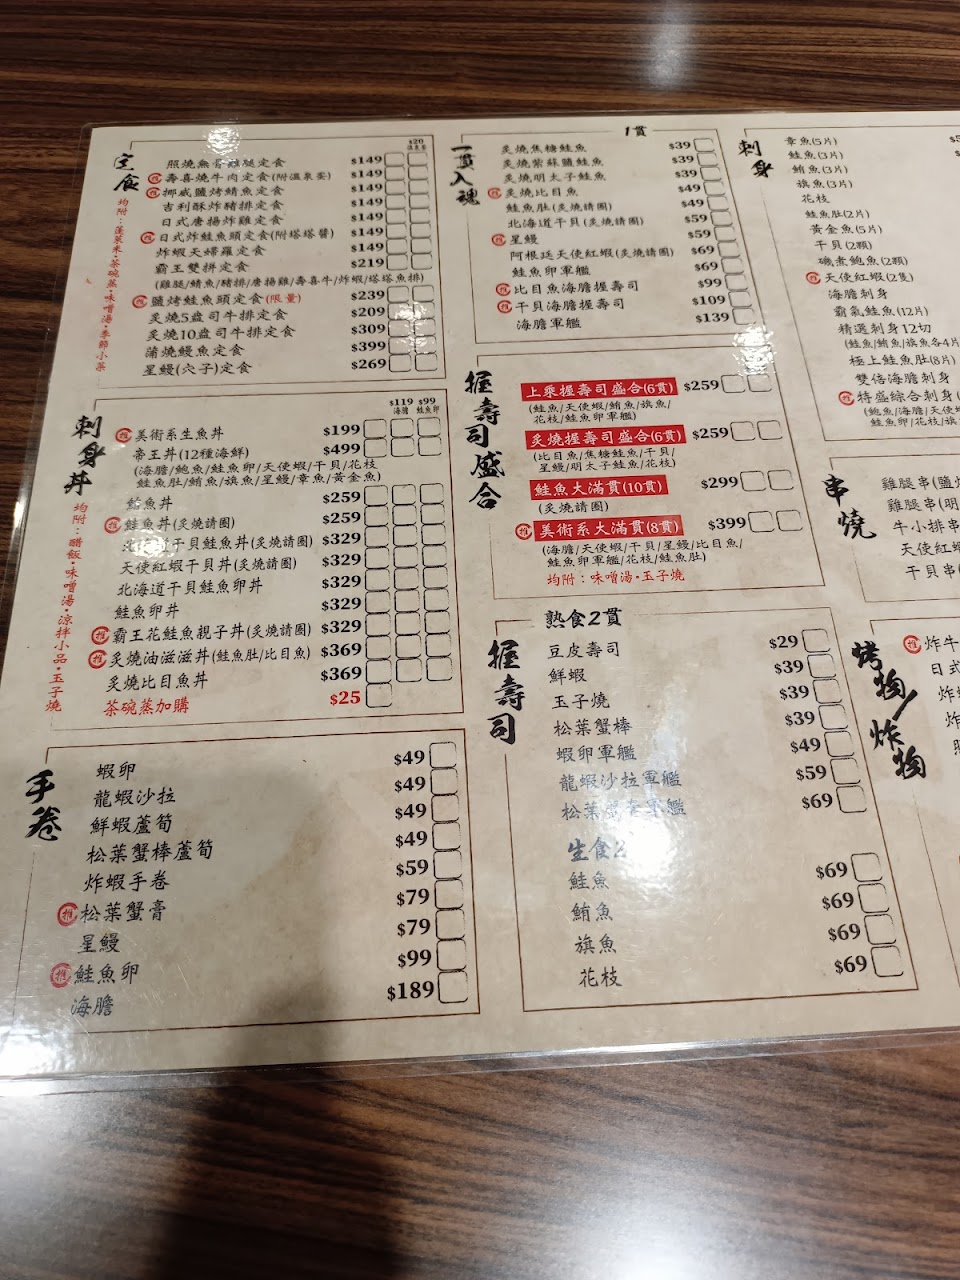 定食
均附：蓬萊米・茶碗蒸・味噌湯・季節小菜
$20
溫泉蛋
照燒無骨雞腿定食 $149
推 壽喜燒牛肉定食(附溫泉蛋) $149
推 挪威鹽烤鯖魚定食 $149
吉利酥炸豬排定食 $149
日式唐揚炸雞定食 $149
推 日式炸鮭魚頭定食(附塔塔醬) $149
炸蝦天婦羅定食 $149
霸王雙拼定食 $219
(雞腿/鯖魚/豬排/唐揚雞/壽喜牛/炸蝦/塔塔魚排)
推 鹽烤鮭魚頭定食(限量) $239
炙燒5盎司牛排定食 $209
炙燒10盎司牛排定食 $309
蒲燒鰻魚定食 $399
星鰻(穴子)定食 $269
刺身丼
均附：醋飯・味噌湯・涼拌小品・玉子燒
$119 $99
海膽 鮭魚卵
推 美術系生魚丼 $199
帝王丼(12種海鮮) $499
(海膽/鮑魚/鮭魚卵/天使蝦/干貝/花枝
鮭魚肚/鮪魚/旗魚/星鰻/章魚/黃金魚)
鮪魚丼 $259
推 鮭魚丼(炙燒請圈) $259
北海道干貝鮭魚丼(炙燒請圈) $329
天使紅蝦干貝丼(炙燒請圈) $329
北海道干貝鮭魚卵丼 $329
鮭魚卵丼 $329
推 霸王花鮭魚親子丼(炙燒請圈) $329
推 炙燒油滋滋丼(鮭魚肚/比目魚) $369
炙燒比目魚丼 $369
茶碗蒸加購 $25
手卷
蝦卵 $49
龍蝦沙拉 $49
鮮蝦蘆筍 $49
松葉蟹棒蘆筍 $49
炸蝦手卷 $59
推 松葉蟹膏 $79
星鰻 $79
推 鮭魚卵 $99
海膽 $189
一貫入魂
1貫
炙燒焦糖鮭魚 $39
炙燒紫蘇鹽鮭魚 $39
炙燒明太子鮭魚 $39
推 炙燒比目魚 $49
鮭魚肚(炙燒請圈) $49
北海道干貝(炙燒請圈) $59
推 星鰻 $59
阿根廷天使紅蝦(炙燒請圈) $69
鮭魚卵軍艦 $69
推 比目魚海膽握壽司 $99
推 干貝海膽握壽司 $109
海膽軍艦 $139
握壽司盛合
上乘握壽司盛合(6貫) $259
(鮭魚/天使蝦/鮪魚/旗魚/
花枝/鮭魚卵軍艦)
炙燒握壽司盛合(6貫) $259
(比目魚/焦糖鮭魚/干貝/
星鰻/明太子鮭魚/花枝)
鮭魚大滿貫(10貫) $299
(炙燒請圈)
推 美術系大滿貫(8貫) $399
(海膽/天使蝦/干貝/星鰻/比目魚/
鮭魚卵軍艦/花枝/鮭魚肚)
均附：味噌湯・玉子燒
握壽司
熟食2貫
豆皮壽司 $29
鮮蝦 $39
玉子燒 $39
松葉蟹棒 $39
蝦卵軍艦 $49
龍蝦沙拉軍艦 $59
松葉蟹膏軍艦 $69
生食2
鮭魚 $69
鮪魚 $69
旗魚 $69
花枝 $69
刺身
章魚(5片)
鮭魚(3片)
鮪魚(3片)
旗魚(3片)
花枝
鮭魚肚(2片)
黃金魚(5片)
干貝(2顆)
磯煮鮑魚(2顆)
推 天使紅蝦(2隻)
海膽刺身
霸氣鮭魚(12片)
精選刺身12切
(鮭魚/鮪魚/旗魚各4片
極上鮭魚肚(8片)
雙倍海膽刺身
推 特盛綜合刺身(
(鮑魚/海膽/天使蝦
鮭魚卵/花枝/鮭魚
串燒
雞腿串(鹽
雞腿串(明
牛小排串
天使紅蝦
干貝串(
烤物/炸物
推 炸牛
日式
炸
炸